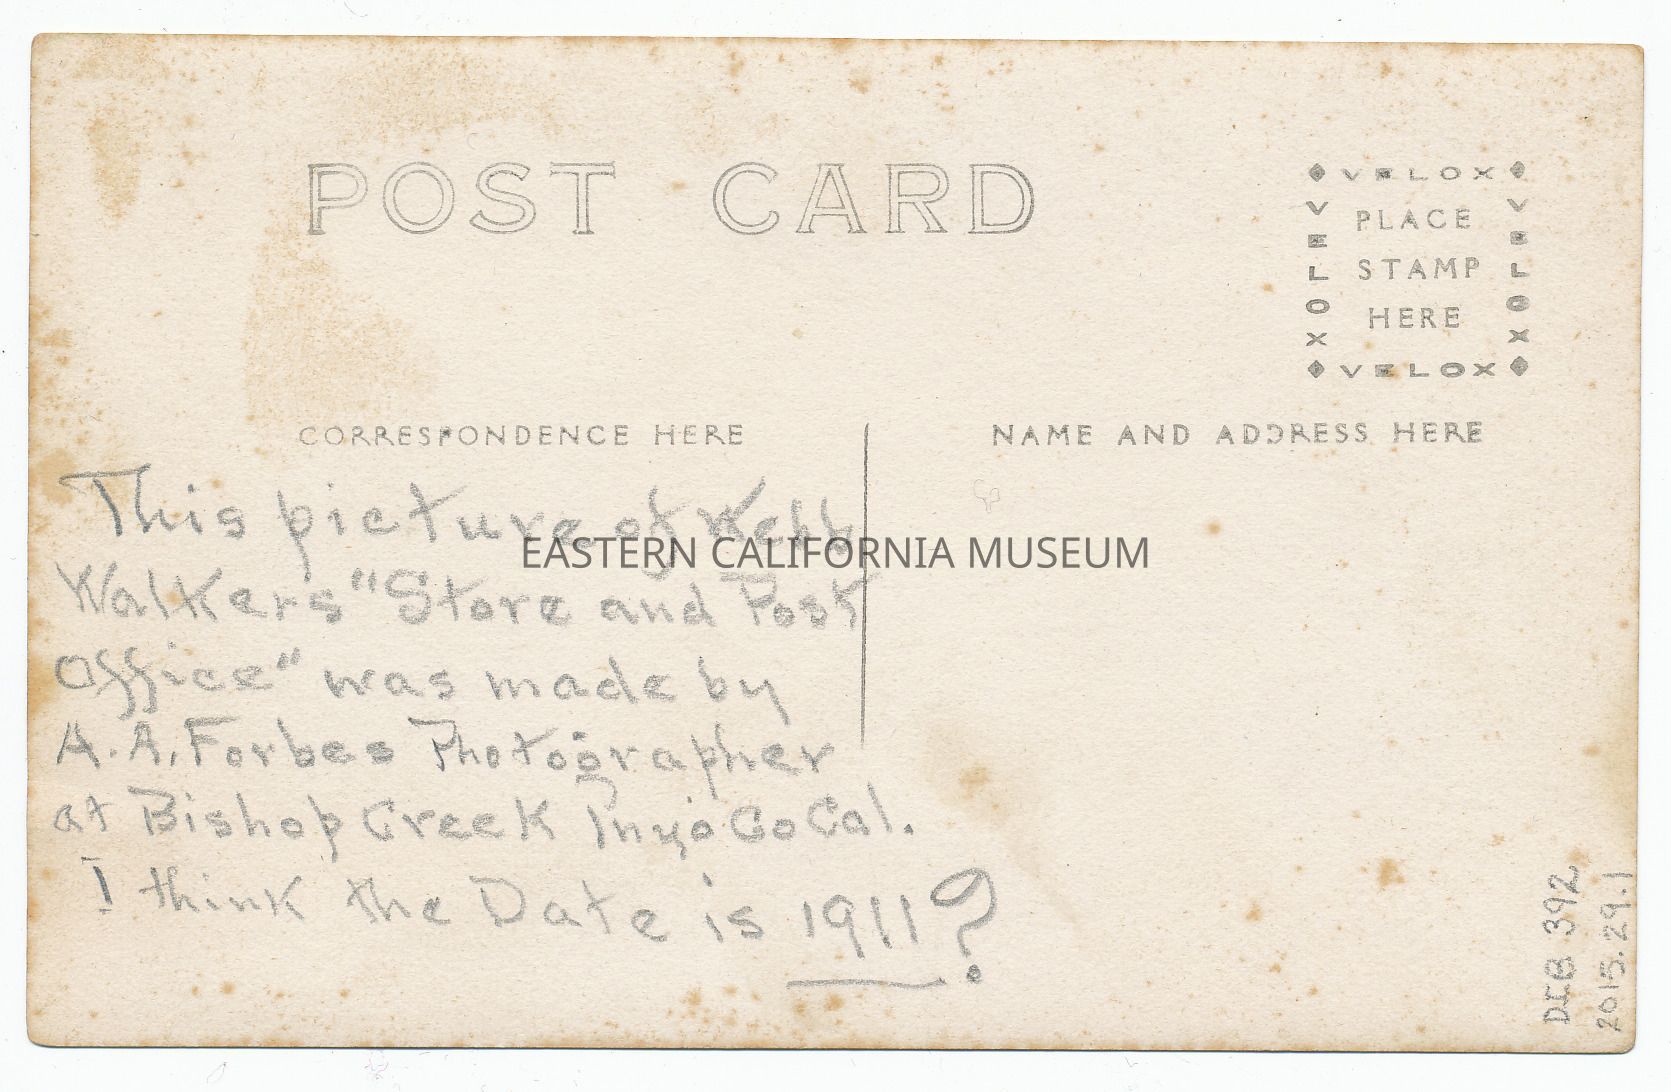 POST CARD
VELOX
VELOX
PLACE
STAMP
HERE
VELOX
VELOX
CORRESPONDENCE HERE
NAME AND ADDRESS HERE
This picture of Webb
EASTERN CALIFORNIA MUSEUM
Walkers "Store and Post
Office" was made by
A.A. Forbes Photographer
at Bishop Creek Inyo Co Cal.
I think the Date is 1911?
DEB 392
2015.29.1